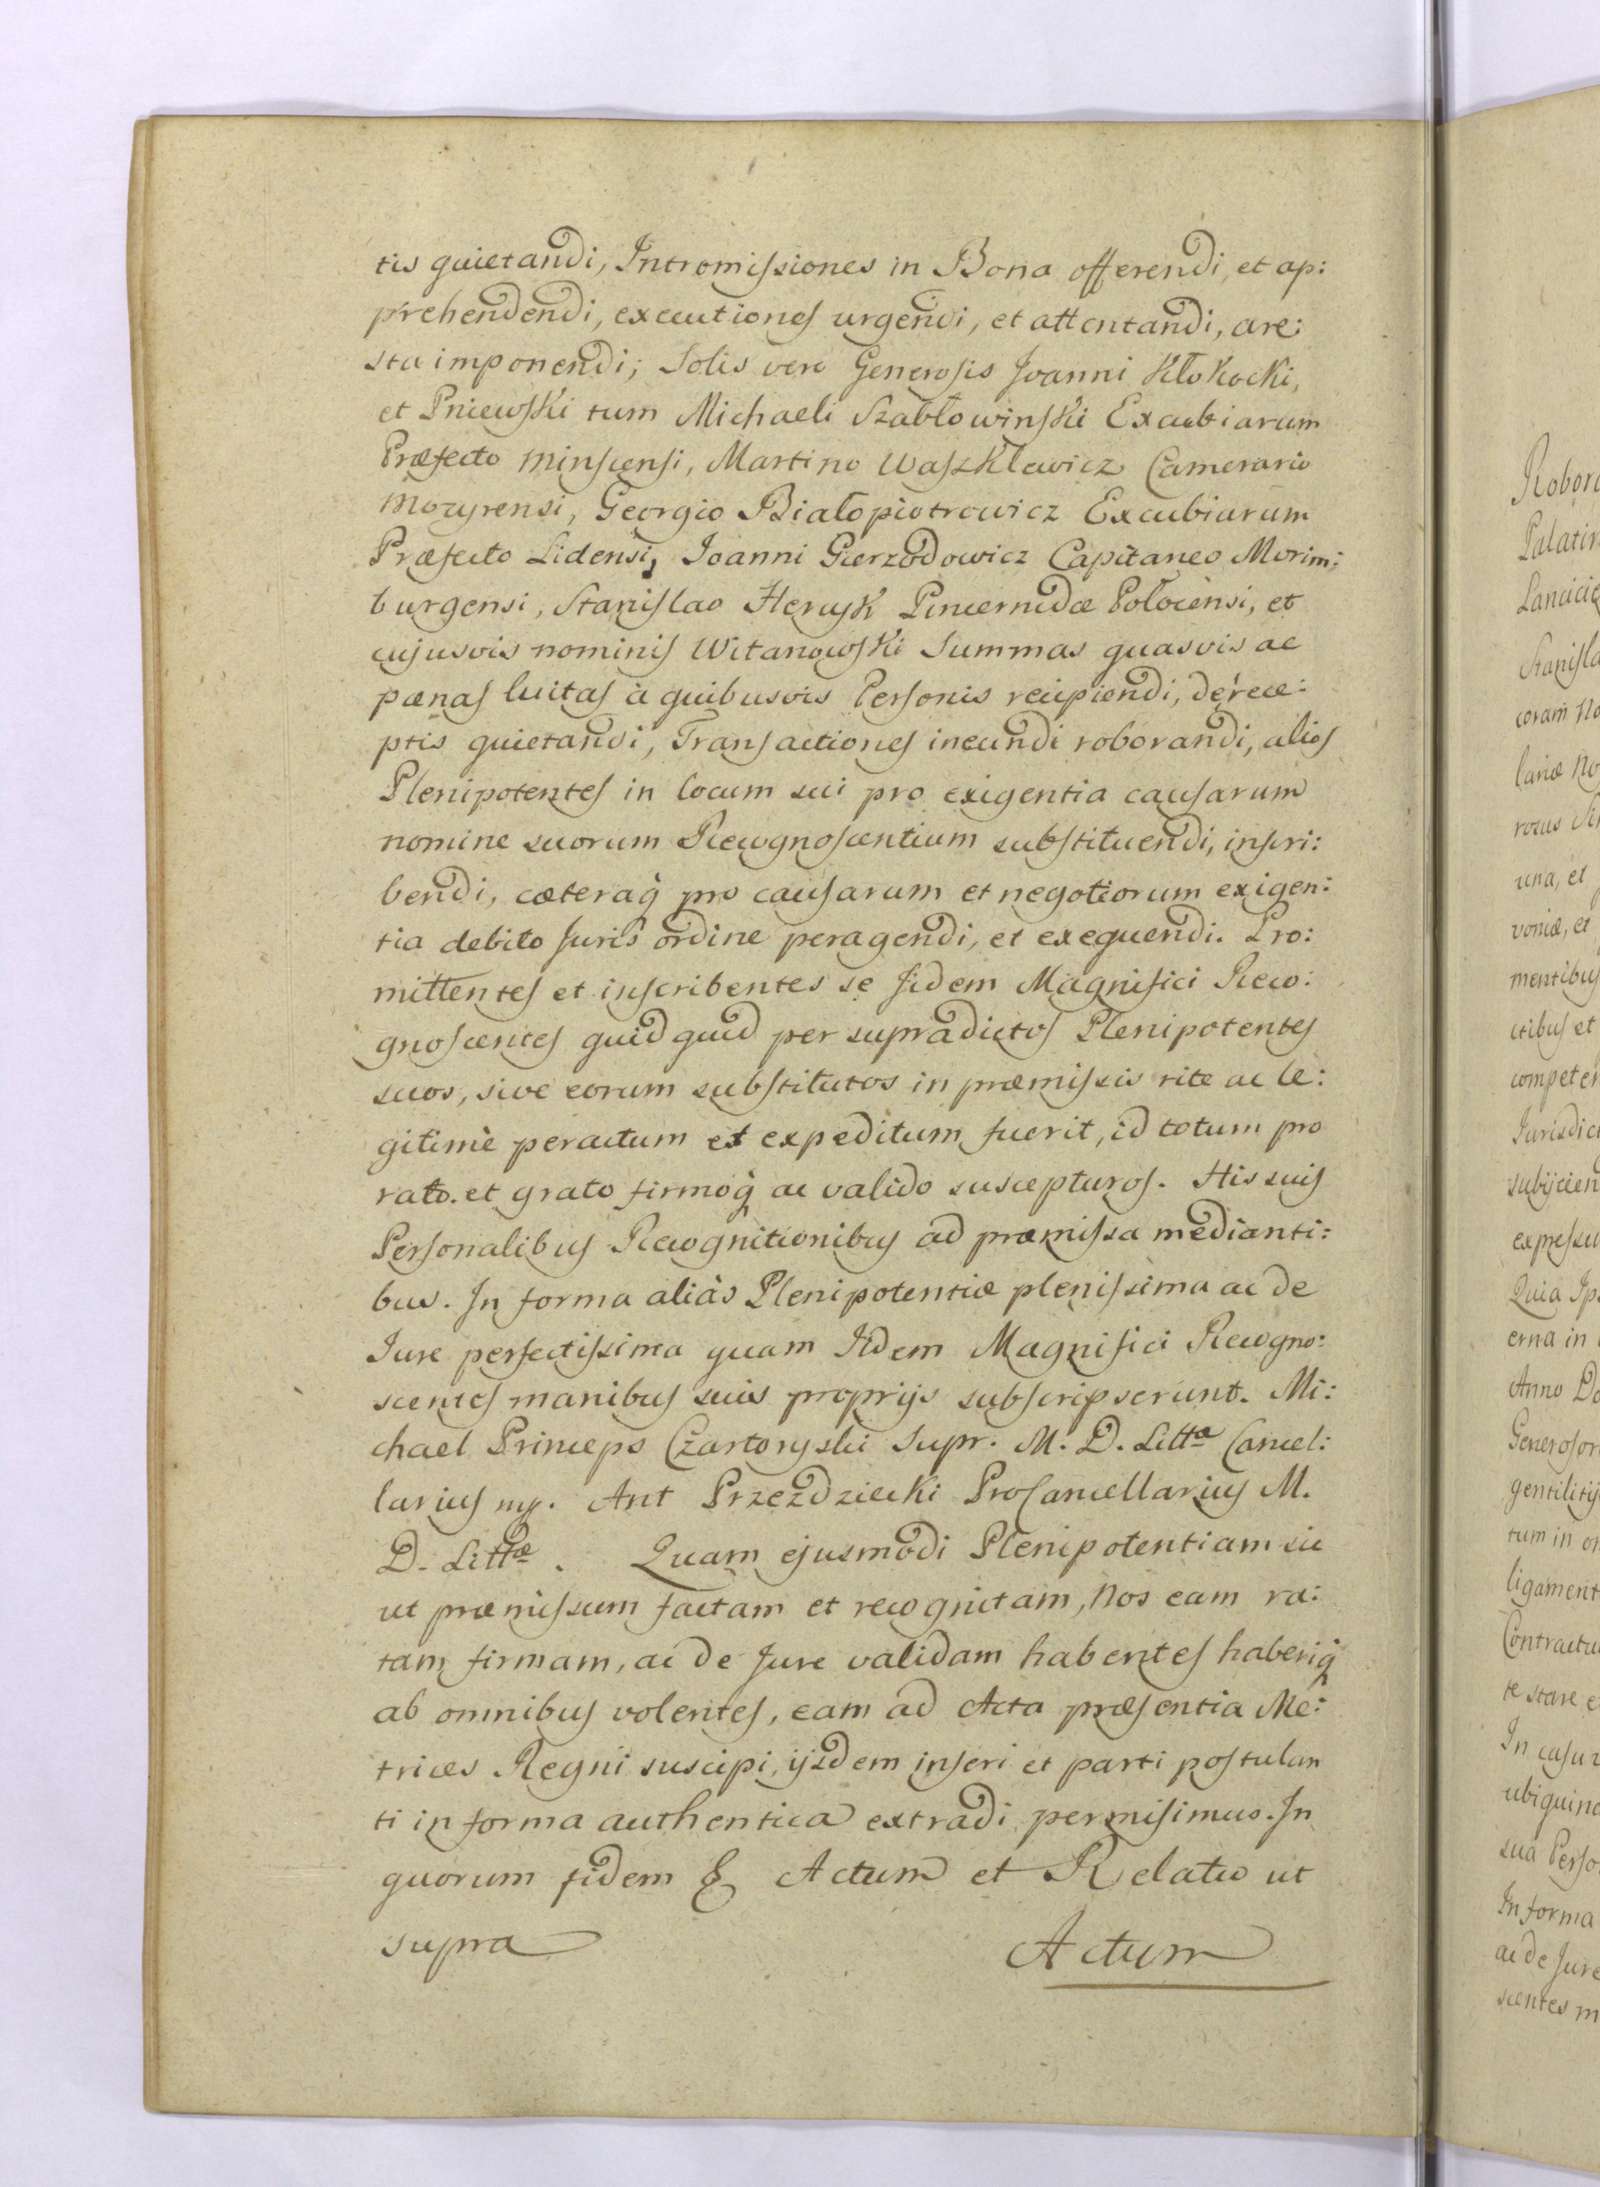 tis quietandi, Intromissiones in Bona offerendi, et ap:
prehendendi, executiones urgendi, et attentandi, are:
sta imponendi; Solis vero Generosis Joanni Kłokocki,
et Pniewski tum Michaeli Szabłowinski Excubiarum
Præfecto Minscensi, Martino Waszklewicz Camerario
Mozyrensi, Georgio Białopiotrowicz Excubiarum
Præfecto Lidensi, Joanni Gierzodowicz Capitaneo Morim:
burgensi, Stanislao Hencyk Pincernidæ Połocensi, et
cujusvis nominis Witanowski Summas quasvis ac
pœnas luitas à quibusvis Personis recipiendi, de rece:
ptis quietandi, Transactiones ineundi roborandi, alios
Plenipotentes in locum sui pro exigentia causarum
nomine suorum Recognoscentium substituendi, inscri:
bendi, cæteraq̀ pro causarum et negotiorum exigen:
tia debito Juris ordine peragendi, et exequendi. Pro:
mittentes et inscribentes se fidem Magnifici Reco:
gnoscentes quid quid per supradictos Plenipotentes
suos, sive eorum substitutos in præmissis rite ac le:
gitimè peractum et expeditum fuerit, id totum pro
rato. et grato firmoq̀ ac valido suscepturos. His suis
Personalibus Recognitionibus ad præmissa medianti:
bus. In forma aliàs Plenipotentiæ plenissima ac de
Jure perfectissima quam Iidem Magnifici Recogno:
scentes manibus suis proprijs subscripserunt. Mi:
chael Princeps Czartoryski Supr. M. D. Littæ Cancel:
larius mp. Ant Przezdziecki ProCancellarius M.
D. Littæ. Quam ejusmodi Plenipotentiam sic
ut præmissum factam et recognitam, Nos eam ra:
tam firmam, ac de Jure validam habentes haberiq̀
ab omnibus volentes, eam ad Acta præsentia Me:
trices Regni suscipi, ijsdem inseri et parti postulan
ti in forma authentica extradi permisimus. In
quorum fidem & Actum et Relatio ut
supra
Actum
Robor
Palatin
Lancicie
Stanisla
coram No
lariæ No
una, et
voniæ, et
mentibus
ctibus et
competen
Jurisdict
subijcien
expressu
Quia Ip
erna in
Anno Do
Generosor
gentilitij
tum in on
ligament
Contractu
te stare e
In casu
ubiquinq
sua Perso
In forma
ac de Jure
scentes m